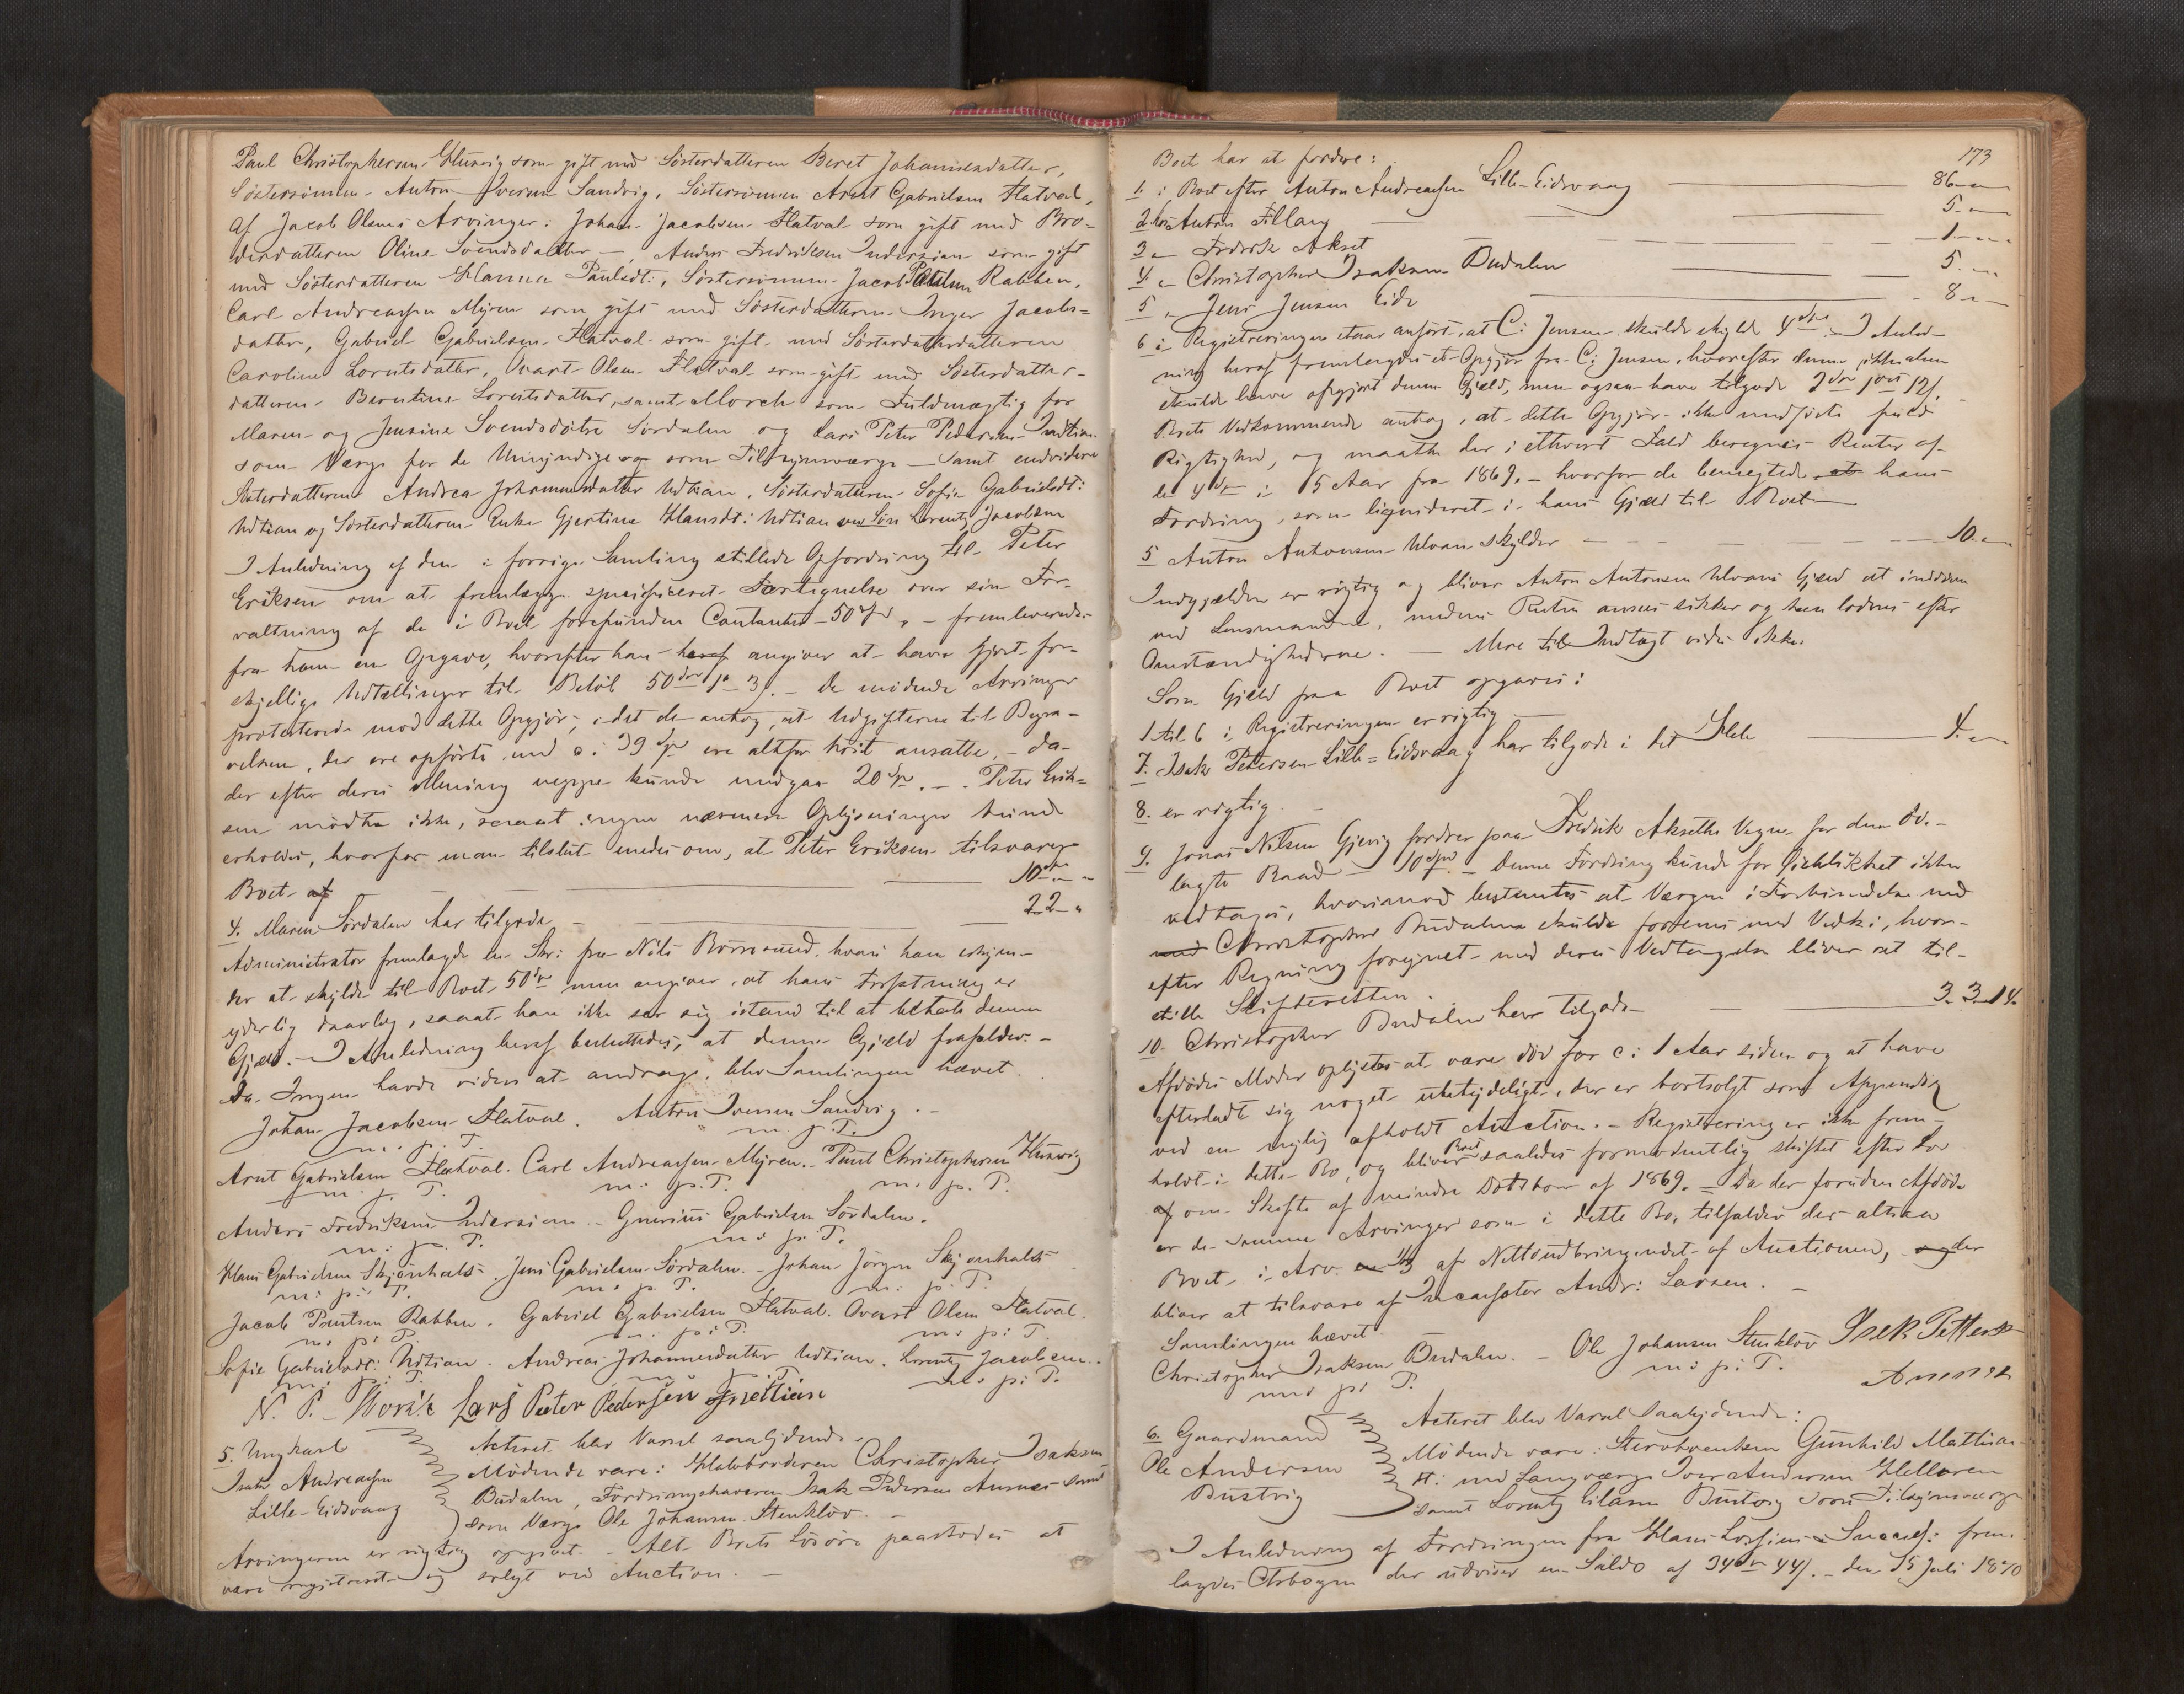 Paul Christophersen Husvig som gift med Søsterdatteren Beret Johannesdatter,
Søstersønnen Anton Iversen Sandvig, Søstersønnen Arnt Gabrielsen Flatval,
af Jacob Olsens Arvinger: Johan Jacobsen Flatval som gift med Bro-
derdatteren Oline Svendsdatter –, Anders Fredriksen Inderøian som gift
med Søsterdatteren Hanna Paulsdt:, Søstersønnen Jacob Paulsen Rabben,
Carl Andreassen Myren som gift med Søsterdatteren Inger Jacobs-
datter, Gabriel Gabrielsen Flatval som gift med Søsterdatterdatteren
Caroline Lorntsdatter, Ovart Olsen Flatval som gift med Søsterdatter-
datteren Berntine Lorntsdatter, samt Morch som Fuldmægtig for
Maren og Jensine Svendsdøtre Sørdalen og Lars Peter Pedersen
som Værge for de Umyndige og som Tilsynsværge – samt endvidere
Søsterdatteren Andrea Johannesdatter Udtian, Søsterdatteren Sofie Gabrielsdt:
Udtian og Søsterdatteren Enke Gjertine Hansdt: Udtian ved Søn Lorentz Jacobsen
I Anledning af den i forrige Samling stillede Opfordring til Peter
Eriksen om at fremlægge specificeret Fortegnelse over sin For-
valtning af de i Boet forefundne Contanter 50 Spd " – fremleveredes
fra ham en Opgave, hvorefter han heraf angiver at have gjort for-
skjellige Udtællinger til Beløb 50 Spd 1 " 3 s. – De mødende Arvinger
protesterede mod dette Opgjør, idet de antog, at Udgifterne til Begra-
velsen, der ere opførte med c: 39 Spd ere altfor høit ansatte, – da
der efter deres Mening neppe kunde medgaa 20 Spd. – . Peter Erik-
sen mødte ikke, saaat ingen nærmere Oplysninger kunde
erholdes, hvorfor man tilslut enedes om, at Peter Eriksen tilsvarer
Boet af – – – 10 Spd " "
4. Maren Sørdalen har tilgode – – 22 "
Administrator fremlagde en Skr: fra Nils Borresund, hvori han erkjen-
der at skylde til Boet 50 Spd men angiver, at hans Forfatning er
yderlig daarlig, saaat han ikke ser sig istand til at betale denne
Gjæld. – I Anledning heraf besluttedes, at denne Gjæld frafaldes. –
Da Ingen havde videre at andrage, blev Samlingen hævet.
Johan Jacobsen Flatval. Anton Iversen Sandvig. –
m. p. P. m. p. P.
Arnt Gabrielsen Flatval. Carl Andreassen Myren. – Paul Christophersen Husvig
m. p. P. m. p. P. m. p. P.
Anders Fredriksen Inderøian – Gabrielsen Sørdalen.
m. p. P. m. p. P.
Hans Gabrielsen Skjønhals. Jens Gabrielsen Sørdalen. – Johan Jørgen Skjønhals
m: p: P. m: p: P. m: p: P.
Jacob Paulsen Rabben. Gabriel Gabrielsen Flatval. Ovart Olsen Flatval.
m: p: P. m: p: P. m: p: P.
Sofie Gabrielsdt: Udtian. Andrea Johannesdatter Udtian. Lorentz Jacobsen.
m: p: P. m: p: P. m: p: P.
N. P. Morch Lars Peter Pedersen
5. Ungkarl Acteret blev Varsel saalydende.
Isak Andreassen Mødende vare: Halvbroderen Christopher Isaksen
Lille-Eidsvaag Budalen, Fordringshaveren Isak Pedersen Ausnes samt
som Værge Ole Johansen Stenkløv. –
Arvingerne er rigtig opgivet. – Alt Boets Løsøre paastodes at
være registreret og solgt ved Auction. –
173
Boet har at fordre:
1. i Boet efter Anton Andreassen Lille-Eidsvaag – 86 " "
2. hos Anton Tillang – 5 " "
3 " Fredrik Akset – – – 1 " "
4 " Christopher Isaksen Budalen – 5 " "
5 " Jens Jensen Eide – 8 " "
6 i Registreringen staar anført, at C: Jensen skulde skylde 4 Spd. I Anled-
ning heraf fremlægges et Opgjør fra C: Jensen, hvorefter denne ikke alene
skulde have afgjort denne Gjæld, men ogsaa have tilgode 2 Spd 12 s.
Boets Vedkommende antog, at dette Opgjør ikke medførte fuld
Rigtighed, og maatte der i ethvert Fald beregnes Renter af
de 4 Spd i 5 Aar fra 1869. – hvorfor de benegtede at hans
Fordring, som liqvideret i hans Gjæld til Boet –
5 Anton Antonsen Ulvan skylder – – – 10. "
Indgjælden er rigtig og bliver Anton Antonsen Ulvans Gjæld at inddrive
ved Lensmanden, medens Resten ansees sikker og kan lodnes efter
Omstændighederne. – Mere til Indtægt vides ikke.
Som Gjæld paa Boet opgaves:
1 til 6 i Registreringen er rigtig –
7. Isak Petersen Lille-Eidsvaag har tilgode i det Hele – 4. "
8. er rigtig. –
9. Jonas Nilsen Gjevig fordrer paa Fredrik Aksets Vegne for den øde-
lagte Baad – 10 Spd. – Denne Fordring kunde for Øieblikket ikke
vedtages, hvorimod bestemtes at Værgen i Forbindelse med
med Christopher Budalen skulde forenes med Vedk:, hvor-
efter Regning forsynet med deres Vedtagelse bliver at til-
stille Skifteretten.
10. Christopher Budalen har tilgode – – 3. 3. 14.
Afdødes Moder oplystes at være død for c: 1 Aar siden og at have
efterladt sig noget ubetydeligt, der er bortsolgt som Appendix
ved en nylig afholdt Auction. – Registrering er ikke frem-
holdt i dette Bo, og bliver Boet saaledes formodentlig skiftet efter Lov
af om Skifte af mindre Dødsboer af 1869. – Da der foruden Afdøde
er de samme Arvinger som i dette Bo, tilfalder der altsaa
Boet i Arv en 1/3 af Nettoudbringendet af Auctionen, og der
bliver at tilsvare af Incassator Andr: Larsen. –
Samlingen hævet. –
Christopher Isaksen Budalen. – Ole Johansen Stenkløv Isek Petters
med p: P. m: p: P. Ausnes
6. Gaardmand Acteret blev Varsel saalydende:
Ole Andersen Mødende vare: Stervboenken Gunhild Mathias-
Bustvig dt: med Laugværge Iver Andersen Hellaren
samt Lorentz Eliasen Bustvig som Tilsynsværge
I Anledning af Fordringen fra Hans Lossius's Success: frem-
lagdes Cbbogen der udviser en Saldo af 34 Spd 44 s. – den 15 Juli 1870